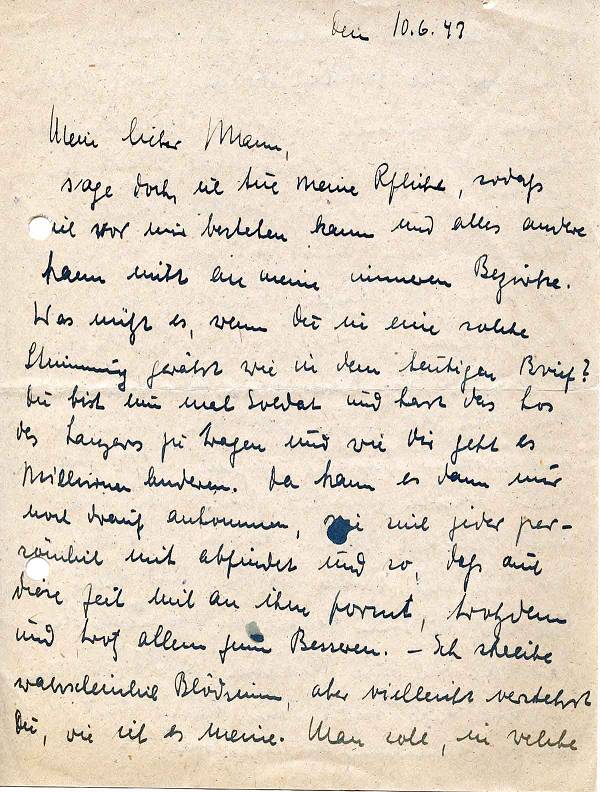 den 10.6.43
Mein lieber Mann,
sage doch, ich tue meine Pflicht, sodaß
ich vor mir bestehen kann und alles andere
kann nicht an meine inneren Bezirke.
Was nützt es, wenn Du in eine solche
Stimmung gerätst wie in dem heutigen Brief?
Du bist nun mal Soldat und hast das Los
des Landsers zu tragen und wie Dir geht es
Millionen anderen. Da kann es dann nur
noch drauf ankommen, wie sich jeder per-
sönlich mit abfindet und so, daß auch
diese Zeit mit an ihm formt, trotzdem
und trotz allem zum Besseren. – Ich schreibe
wahrscheinlich Blödsinn, aber vielleicht verstehst
Du, wie ich es meine. Man soll, in welche